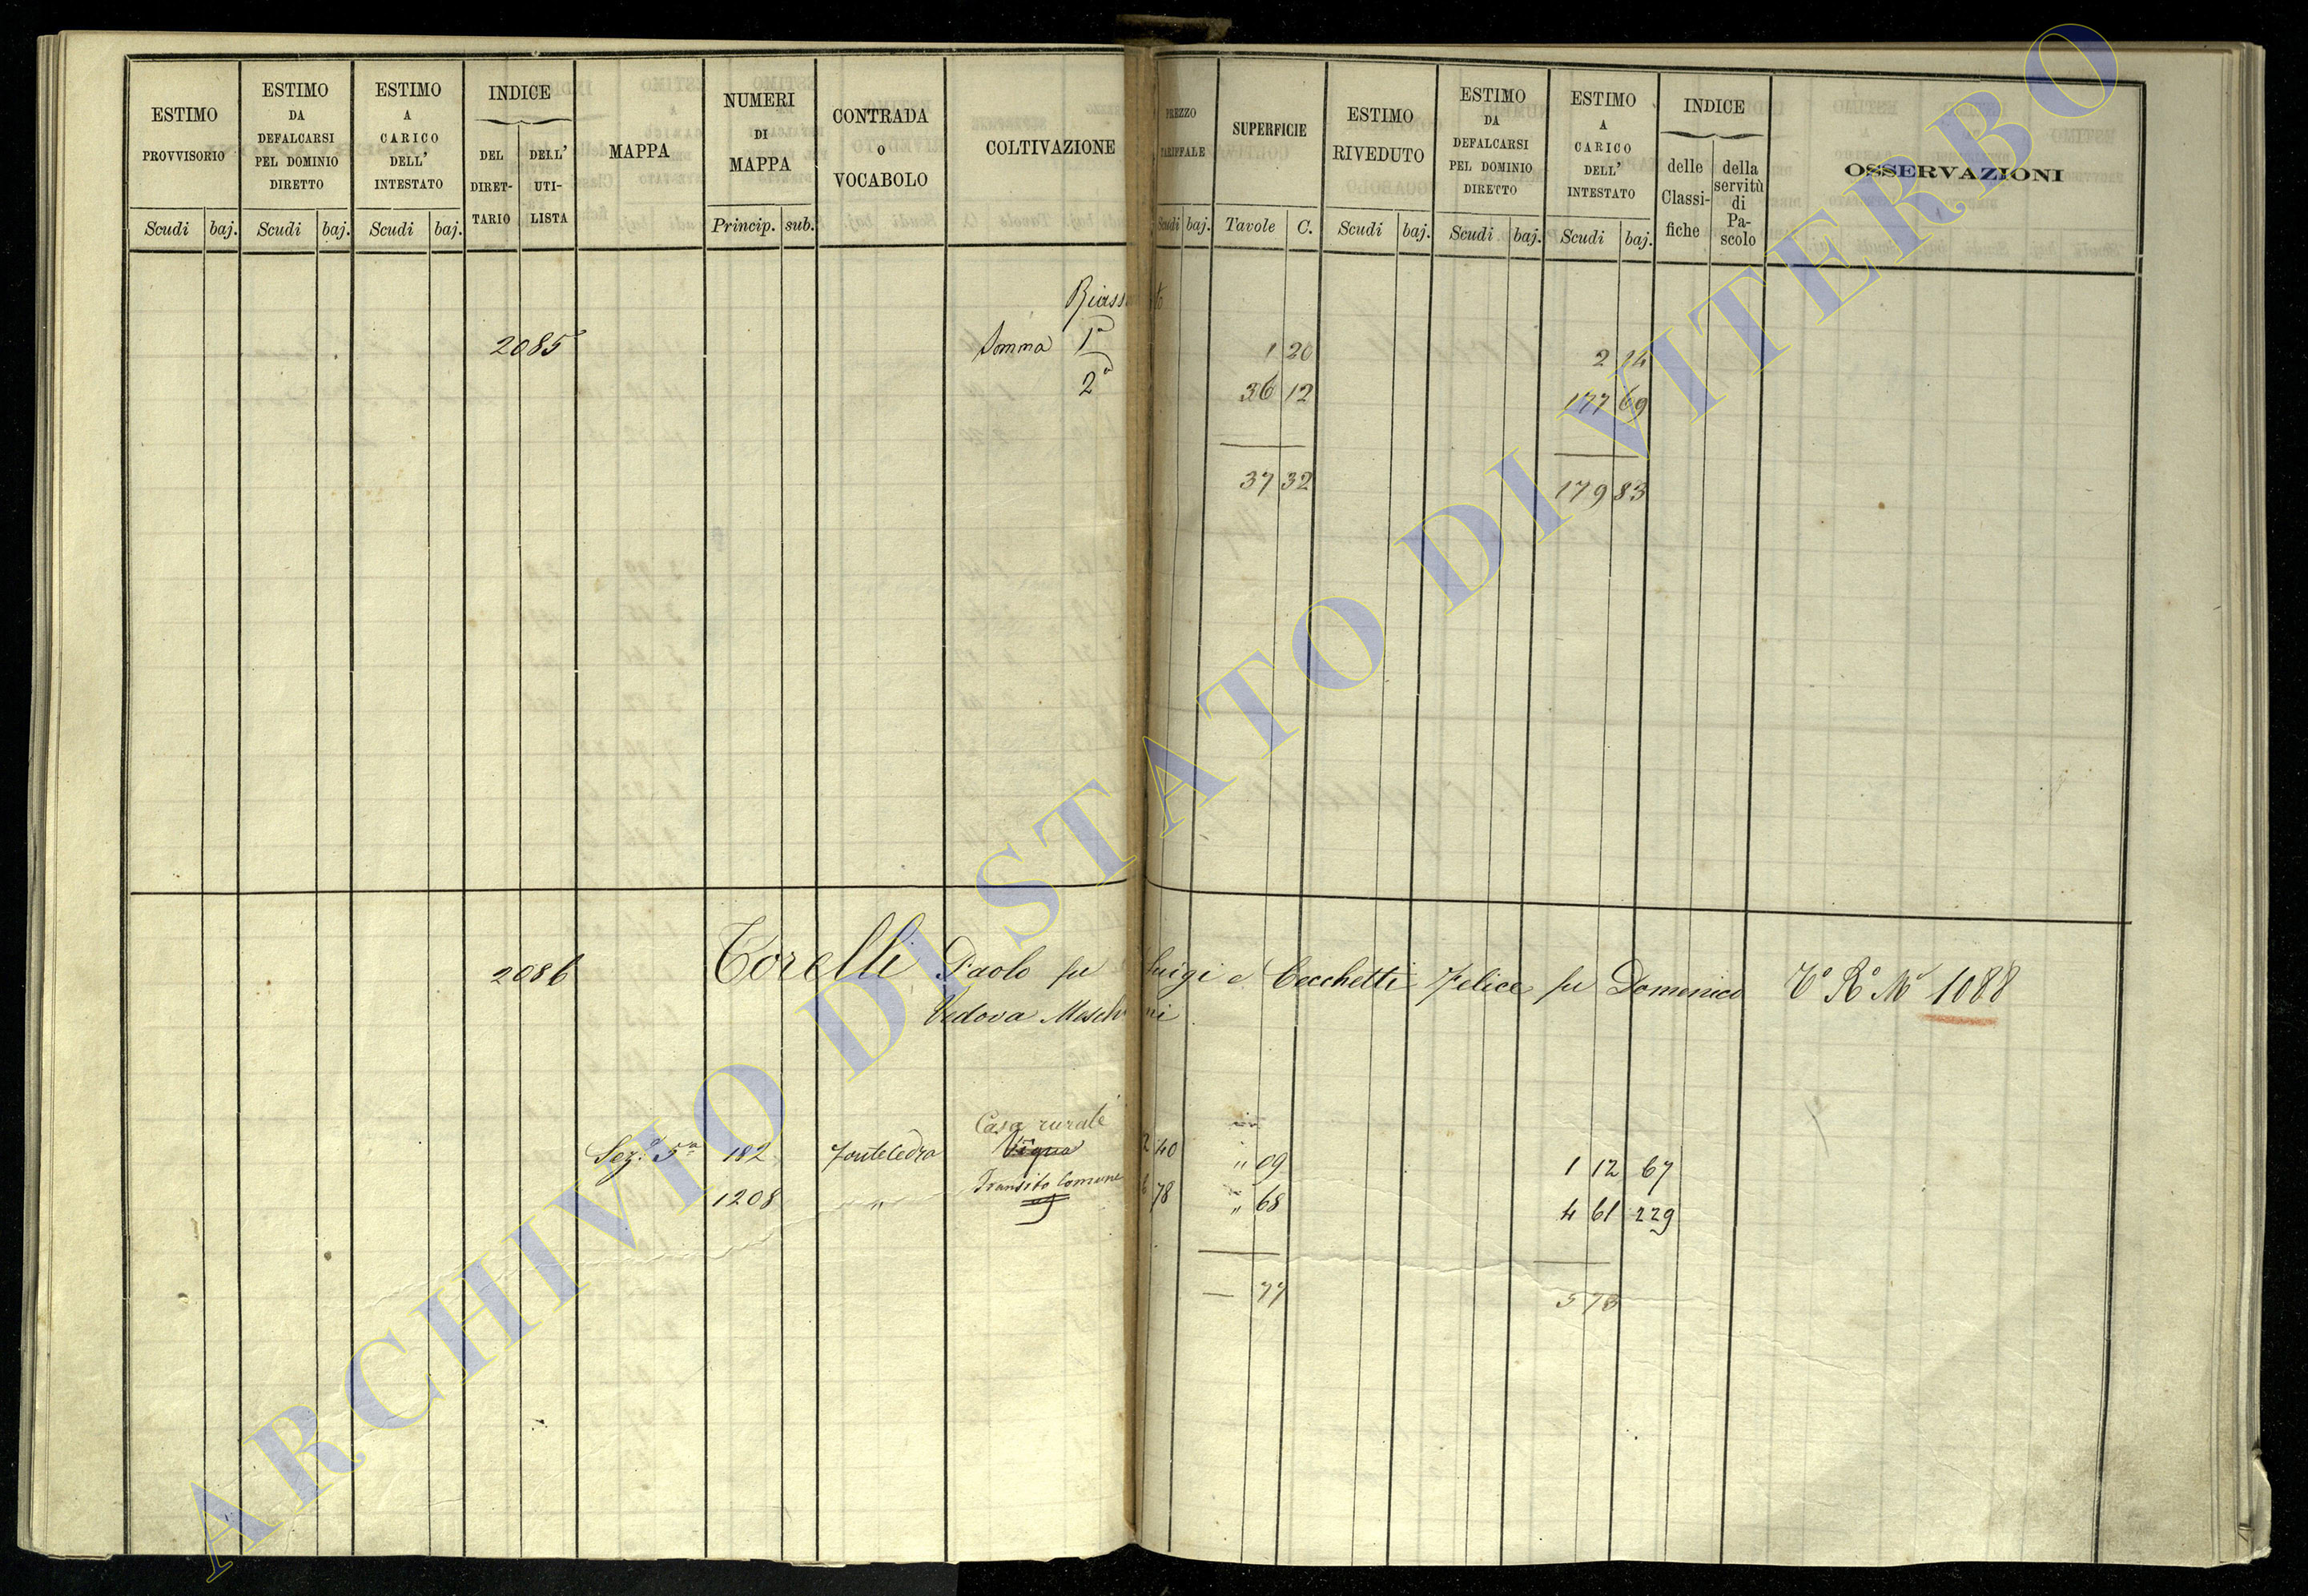 ESTIMO PROVVISORIO Scudi baj.
ESTIMO DA DEFALCARSI PEL DOMINIO DIRETTO Scudi baj.
ESTIMO A CARICO DELL' INTESTATO Scudi baj.
INDICE DEL DIRET-TARIO DELL' UTI-LISTA
MAPPA
NUMERI DI MAPPA Princip. sub.
CONTRADA O VOCABOLO
COLTIVAZIONE
PREZZO TARIFFALE Scudi baj.
SUPERFICIE Tavole C.
ESTIMO RIVEDUTO Scudi baj.
ESTIMO DA DEFALCARSI PEL DOMINIO DIRETTO Scudi baj.
ESTIMO A CARICO DELL' INTESTATO Scudi baj.
INDICE delle Classi-fiche della servitù di Pa-scolo
OSSERVAZIONI
2085 Somma 1ª 1 20 2 14
2ª 36 12 177 69
37 32 179 83
2086 Torelli Paolo fu Luigi e Cecchetti Felice fu Domenico Vº Rº Nº 1088
Vedova Meschini
Casa rurale
Sez.ª 5ª 182 Fontecedro Vigna 2 40 " 09 1 12 67
Transito Comune
1208 " 6 78 " 68 4 61 229
— 77 5 73
ARCHIVIO DI STATO DI VITERBO